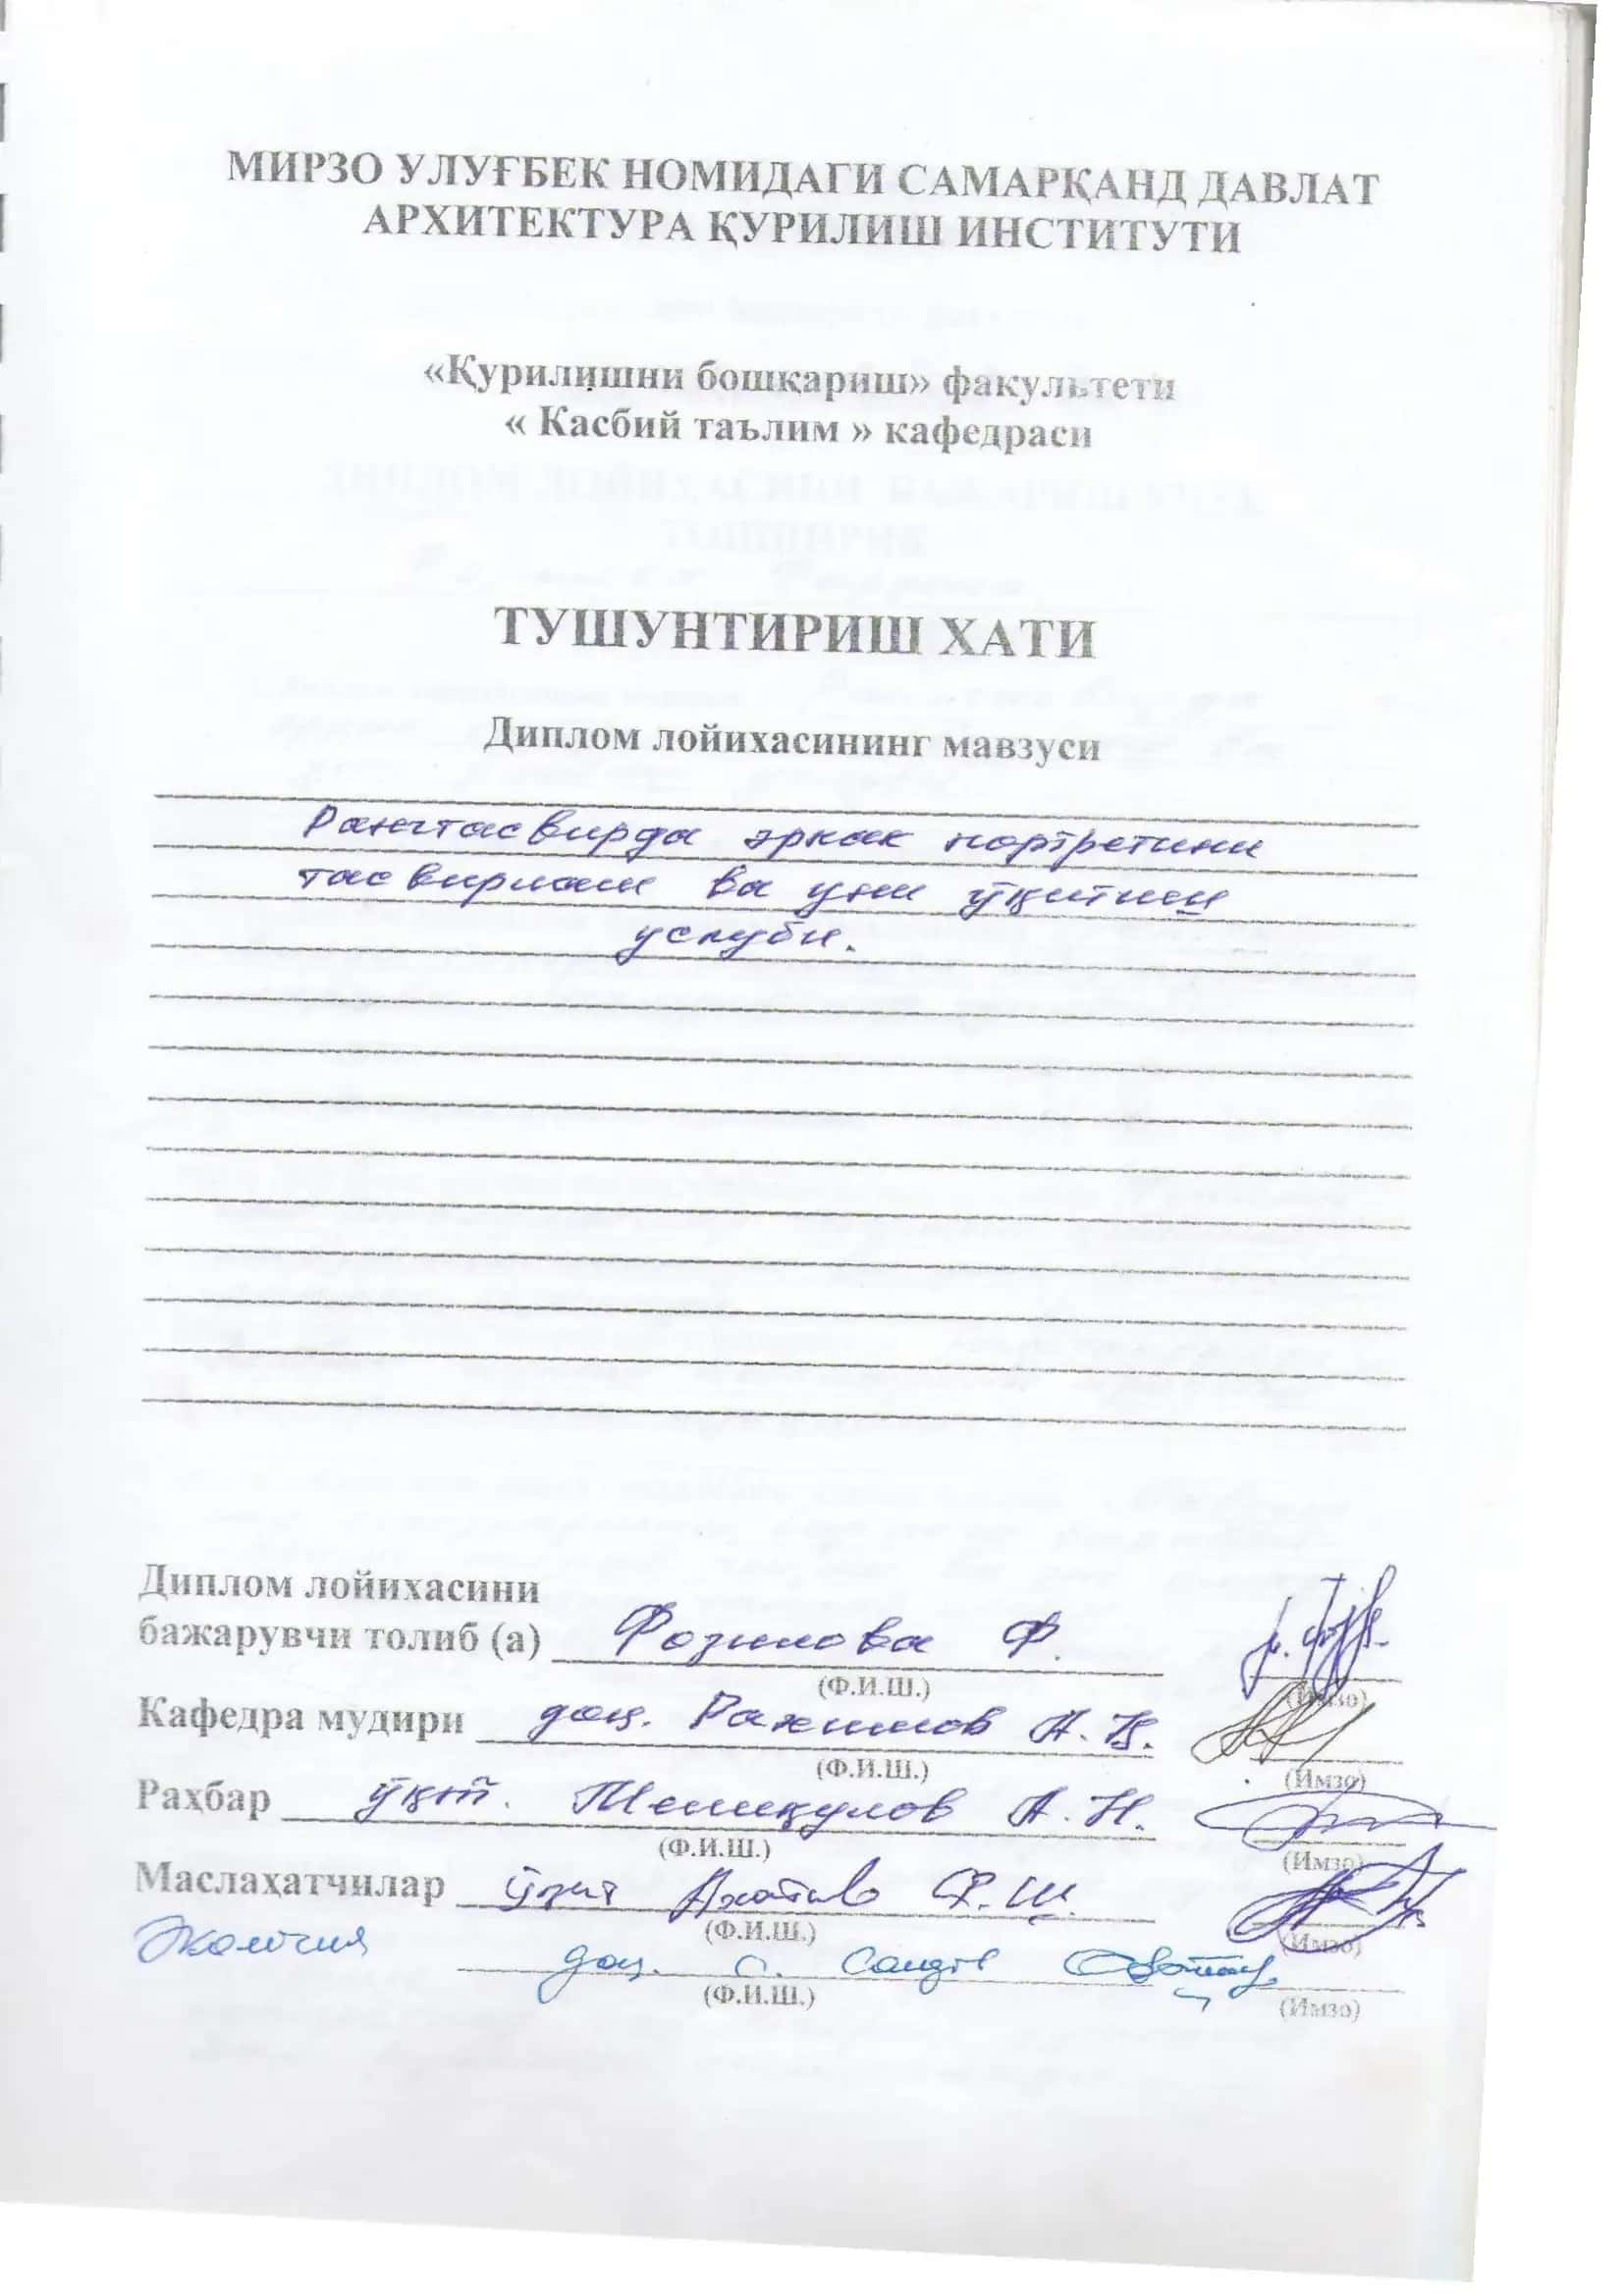 МИРЗО УЛУҒБЕК НОМИДАГИ САМАРҚАНД ДАВЛАТ
АРХИТЕКТУРА ҚУРИЛИШ ИНСТИТУТИ
«Қурилишни бошқариш» факультети
« Касбий таълим » кафедраси
ТУШУНТИРИШ ХАТИ
Диплом лойихасининг мавзуси
Рангтасвирда эркак портретини
тасвирлаш ва уни ўқитиш
услуби.
Диплом лойихасини
бажарувчи толиб (а) Фозилова Ф.
(Ф.И.Ш.) (Имзо)
Кафедра мудири доц. Рахимов А.Қ.
(Ф.И.Ш.) (Имзо)
Раҳбар ўқит. Тешиқулов А.Н.
(Ф.И.Ш.) (Имзо)
Маслаҳатчилар ўқит Ф.Ш.
(Ф.И.Ш.) (Имзо)
Экология доц. С. Саидов
(Ф.И.Ш.) (Имзо)